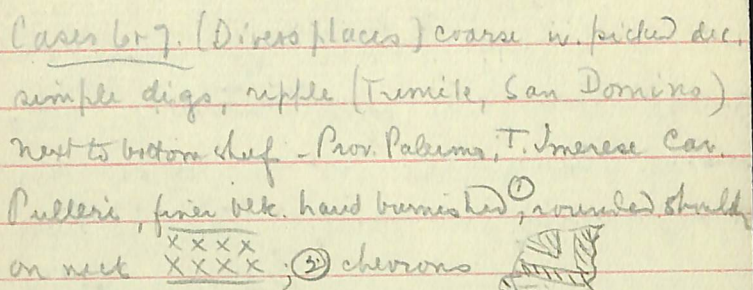 Cases 6 or 7. (Divers places) coarse w. picked dec,
simple digs, ripple (Tremite, San Domino)
Next to bottom shelf - Prov. Palermo, T. Imerese Cav.
Pulleri, finer blk. hand burnished ①, rounded should
on neck XXXX XXXX ; ③ chevrons